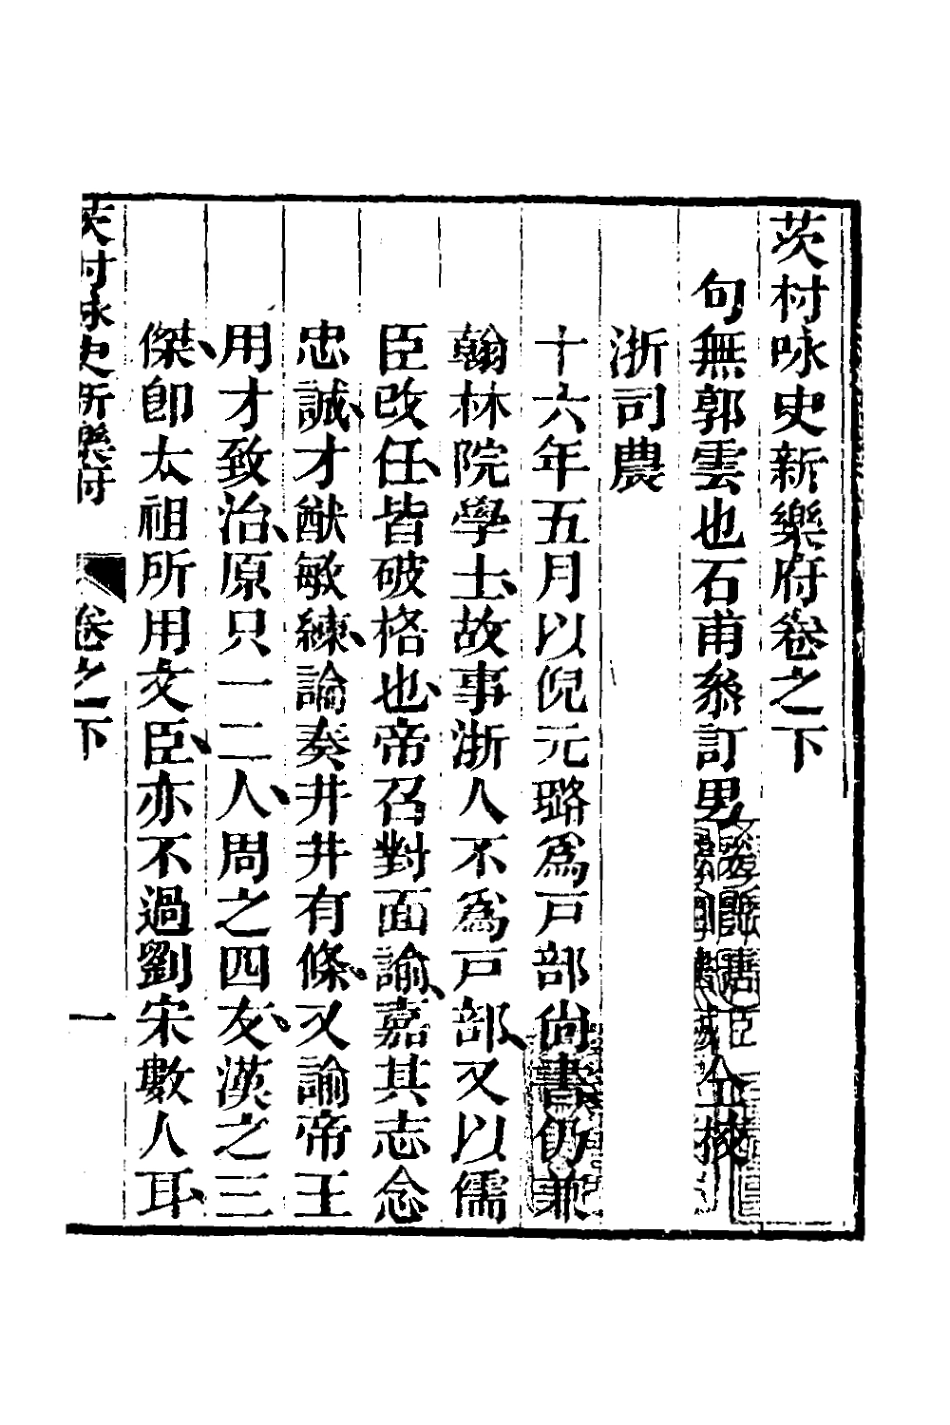 茨村咏史新樂府卷之下
句無郭雲也石甫叅訂男
臣
誠
仝挍
浙司農
十六年五月以倪元璐爲戸部尚書仍兼
翰林院學士故事浙人不爲戸部又以儒
臣改任皆破格也帝召對面諭嘉其志念
忠誠才猷敏練論奏井井有條又諭帝王
用才致治原只一二人周之四友漢之三
傑卽太祖所用文臣亦不過劉宋數人耳
茨村咏史新樂府 卷之下 一